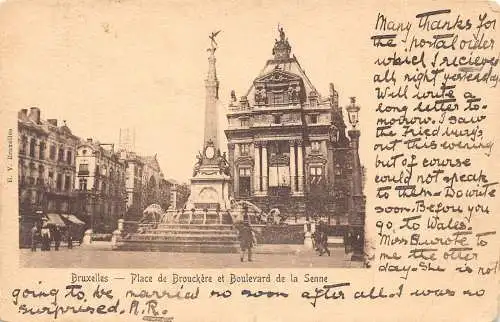 Many thanks for
the postal order
which I recieved
all right yesterday.
Will write a
long letter to-
morrow. I saw
the Friedburgs
out this evening
but of course
could not speak
to them. Do write
soon. Before you
go, to Wales.
Miss wrote to
me the other
day. She is not
E. V. Bruxelles
Bruxelles — Place de Brouckère et Boulevard de la Senne
going to be married so soon after all. I was so
surprised. A.R.